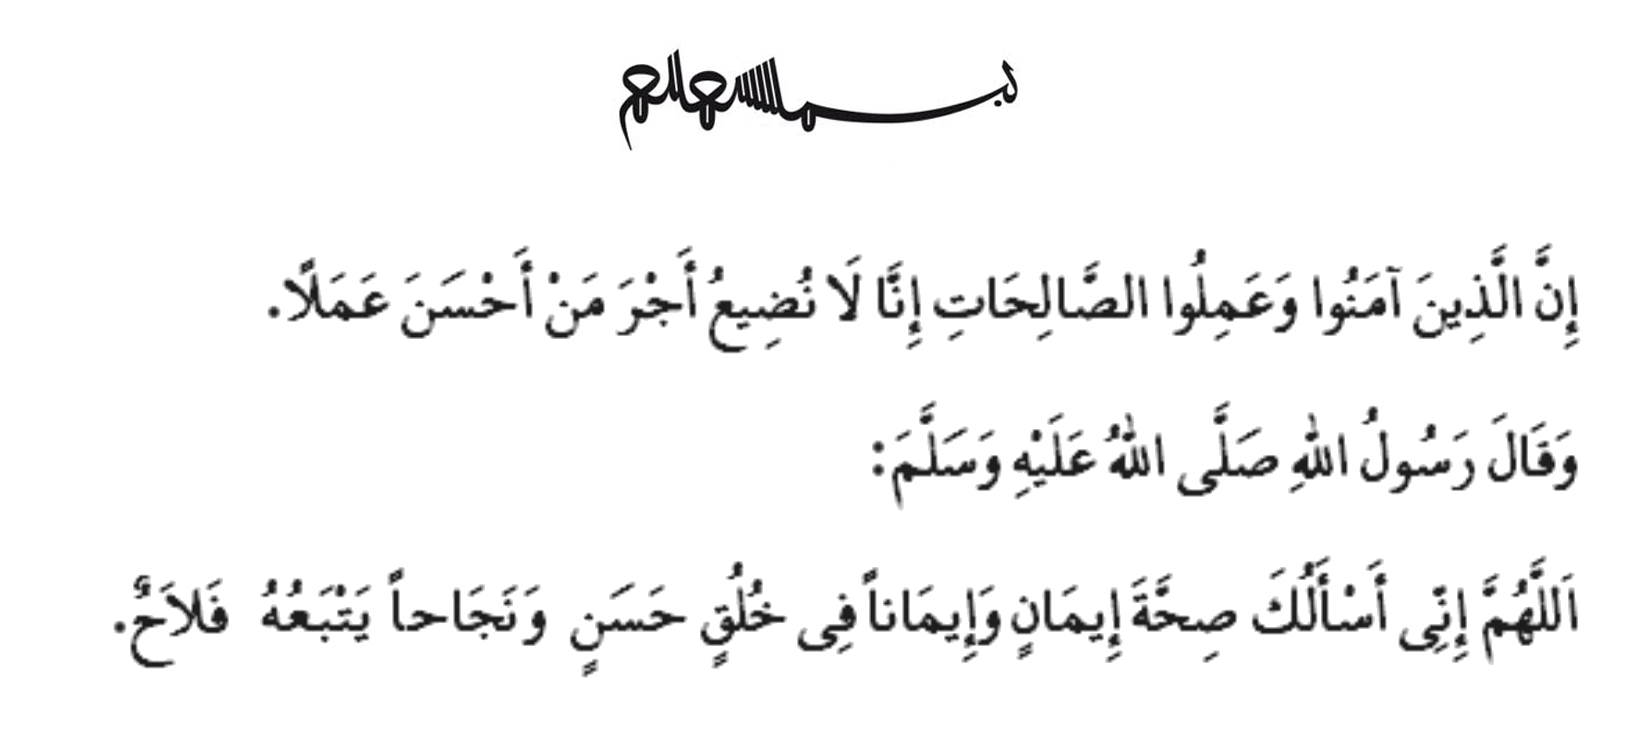 بسم الله الرحمن الرحيم
إِنَّ الَّذِينَ آمَنُوا وَعَمِلُوا الصَّالِحَاتِ إِنَّا لَا نُضِيعُ أَجْرَ مَنْ أَحْسَنَ عَمَلًا.
وَقَالَ رَسُولُ اللهِ صَلَّى اللهُ عَلَيْهِ وَسَلَّمَ:
اَللَّهُمَّ إِنِّى أَسْأَلُكَ صِحَّةَ إِيمَانٍ وَإِيمَاناً فِى خُلُقٍ حَسَنٍ وَنَجَاحاً يَتْبَعُهُ فَلاَحٌ.